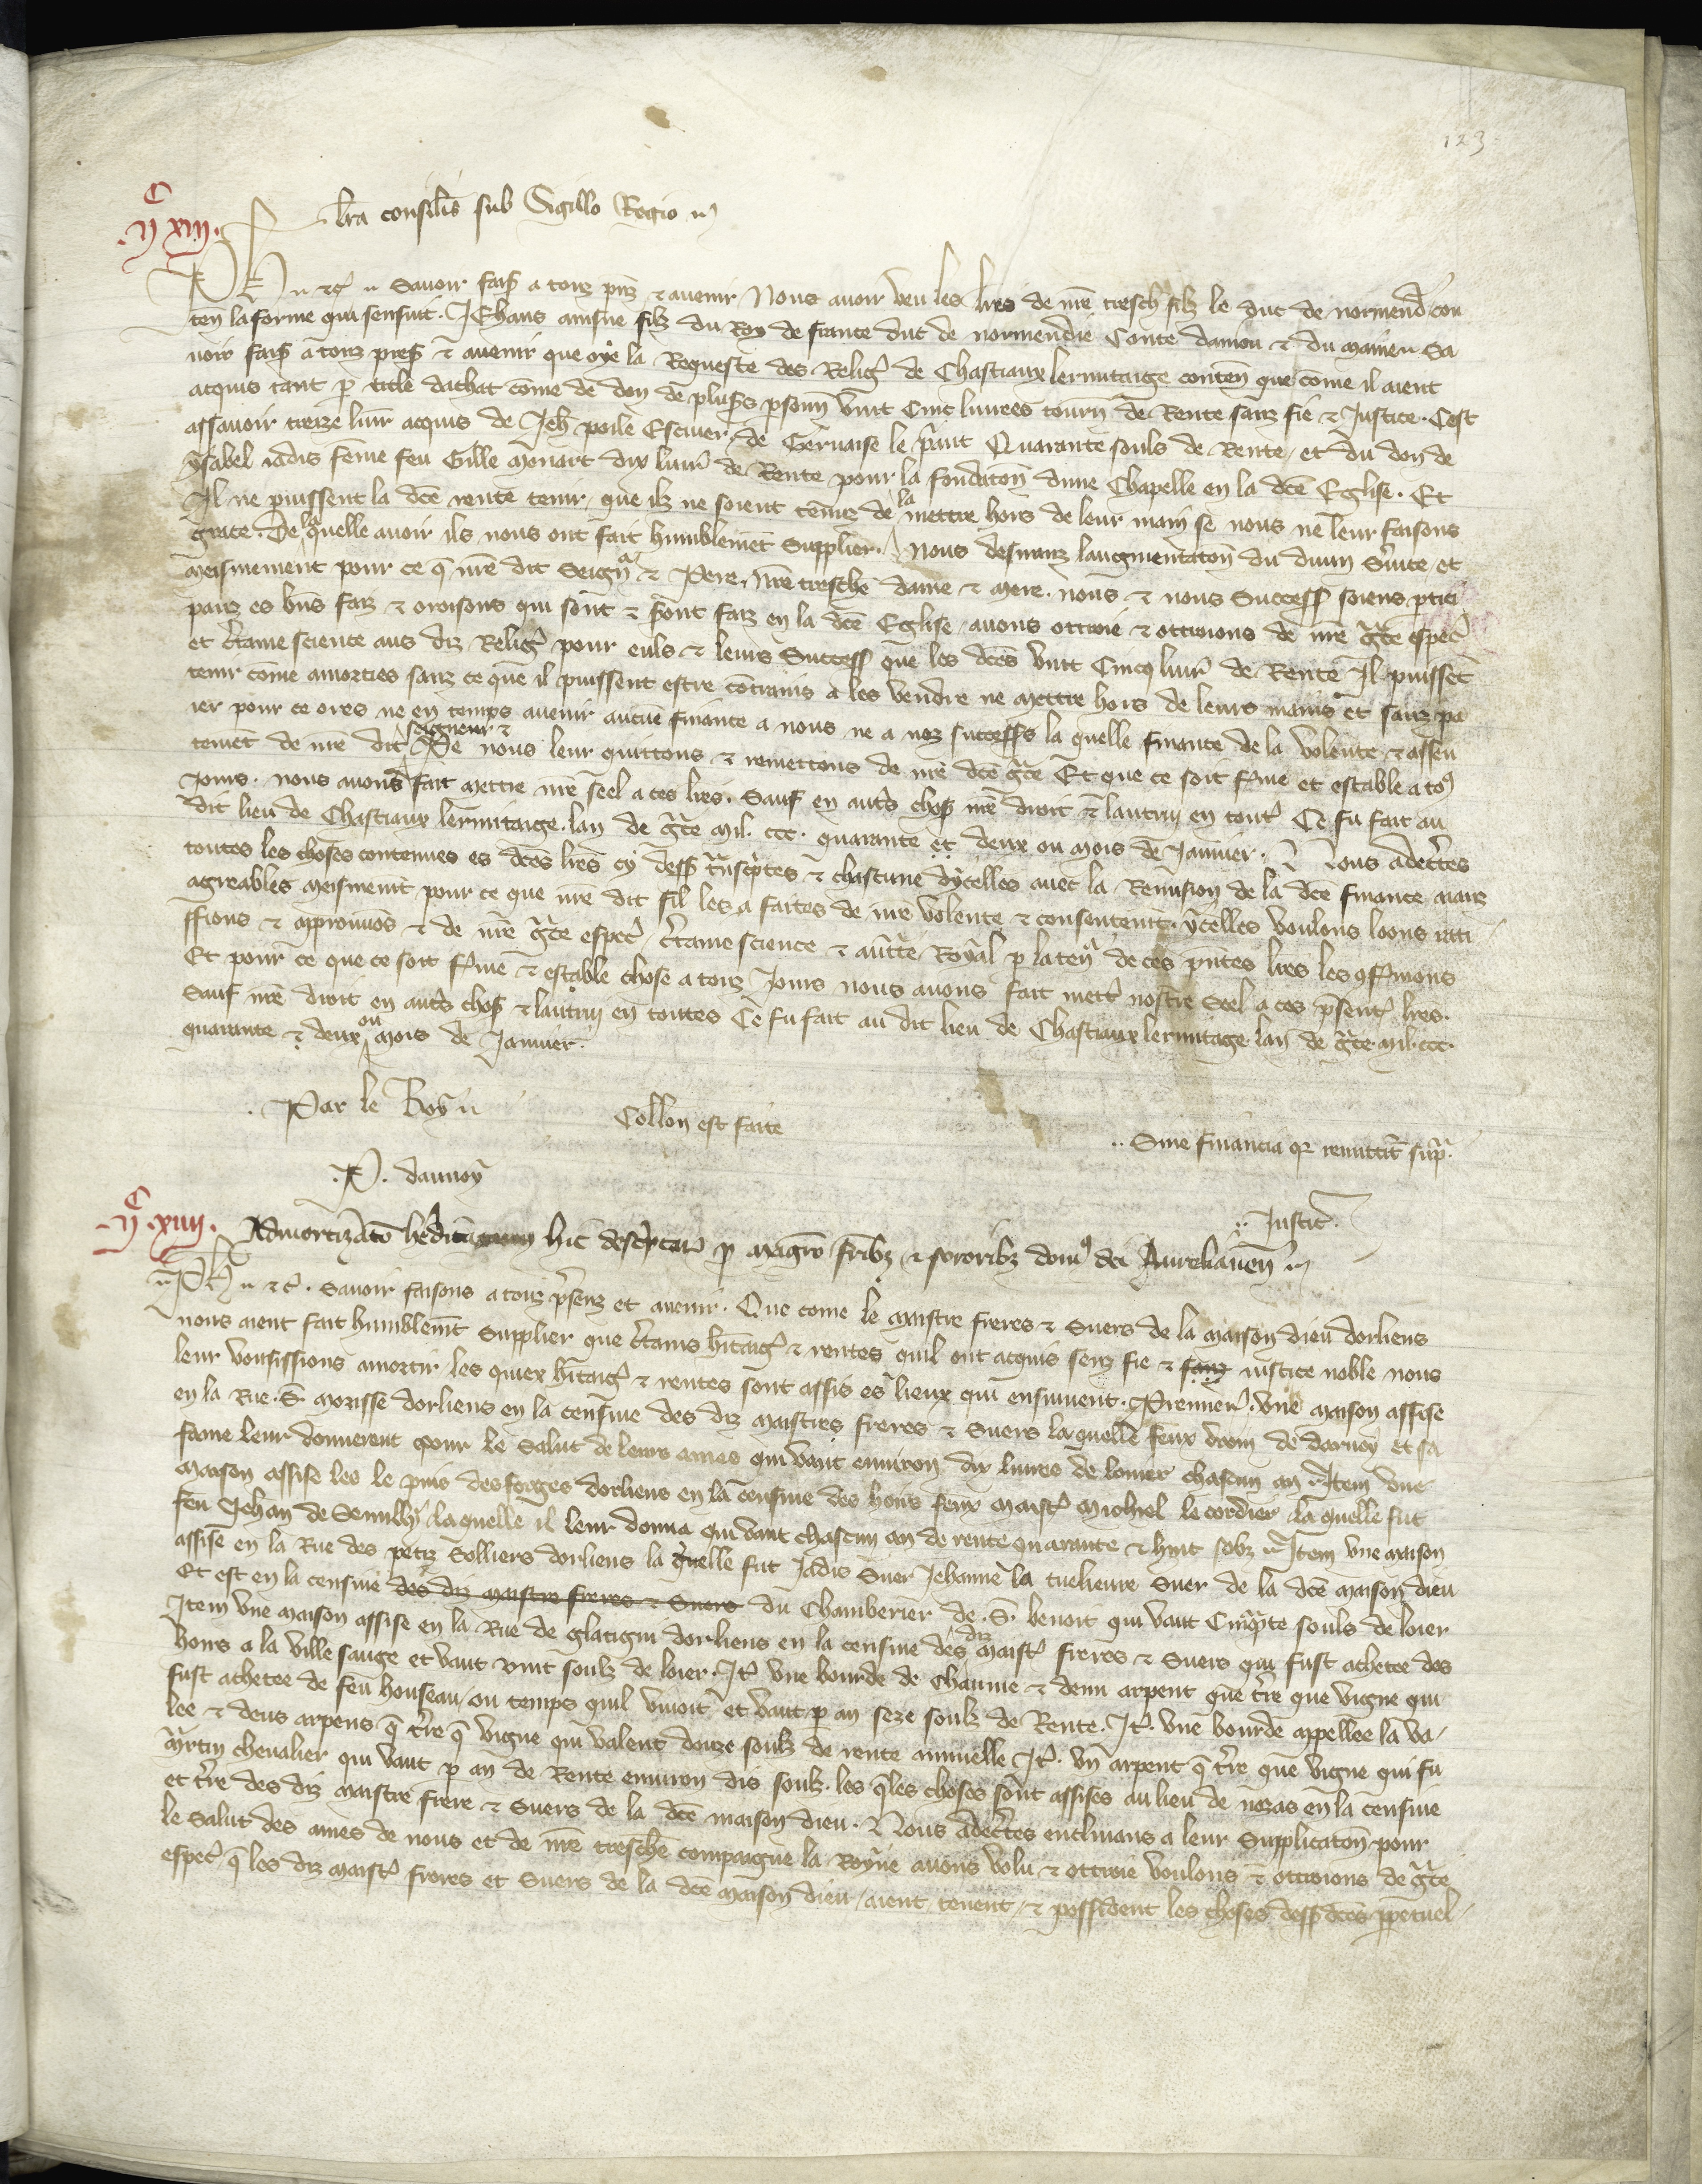 123
C
.II XIII. lr̃a consil̃is sub Sigillo Regio
Ph̃ & c̃ Savoir fais̃ a touz p̃ñz & avenir Nous avoir veu les lr̃es de nr̃e tresch̃ filz le duc de normend̃ con
ten la forme qui sensuit. Jehans ainsne filz du Roy de france duc de normendie Conte danjou & du maine Sa
voir fais̃ a touz pres̃ & avenir que oye la Requeste des Relig̃ de Chastiaux lermitaige conten̄ que cōme il aient
acquis tant p̱ title dachat cōme de don de plus̃s p̱sonn̄ vint Cinc livrees tourn̄ de Rente sanz fie & Justice. Cest
assavoir treize livr̃ acquis de Jeh̃ poile Escuier, de Gervaise le p̃vint Quarante souls de Rente, et du don de
ysabel iadis fēme feu Gille Monart dix livr̃ de Rente pour la fondac̃on dune Chapelle en la dc̃e Eglise. Et
Il ne puissent la dc̃e rente tenir, que ilz ne soient tenuz de la mettre hors de leur main se nous ne leur faisons
grace. De la quelle avoir ils nous ont fait humblemēt Supplier. Nous desiranz laugmentac̃on du divin S̃vice et
meismement pour ce q̃ nr̃e dit Seign̄r & Pere, nr̃e tresch̃e dame & mere. nous & nous Success̃ soiens p̱tici
panz es bn̄s faiz & oroisons qui sont & s̃ont faiz en la dc̃e Eglise, avons ottroie & ottroions de nr̃e gr̃ce espec̃
et c̃taine science aus diz Relig̃ pour euls & leurs Success̃ que les dc̃es vint Cincq livr̃ de Rente Il puissēt
tenir cōme amorties sanz ce que il puissent estre cōtrains a les vendre ne mettre hors de leurs mains et sanz pa
ier pour ce ores ne en temps avenir aucūe finance a nous ne a noz success̃s la quelle finance de la volente & assen
temēt de nr̃e dit seigneur & P̃e nous leur quittons & remettons de nr̃e dc̃e gr̃ce Et que ce soit f̃me et estable a to9
jours. nous avons fait mettre nr̃e seel a ces lr̃es. Sauf en autr̃s chos̃ nr̃e droit & lautruy en tout̃ Ce fu fait au
dit lieu de Chastiaux lermitaige. lan de gr̃ce mil. ccc. quarante et deux ou mois de Janvier. Nous adec̃tes
toutes les choses contenues es dc̃es lr̃es cy dess̃ tr̃nscr̃ptes & chascune dycelles avec la Remission de la dc̃e finance aianz
agreables meismemt̄ pour ce que nr̃e dit fil les a faites de nr̃e volente & consentemt̄. ycelles voulons loons rati
ffions & approuvōs & de nr̃e gr̃ce espec̃ c̃taine science & auct̃te Royal p̱ la ten̄r de ces p̃ntes lr̃es les 9f̃mons
Et pour ce que ce soit f̃me & estable chose a touz Jours nous avons fait mett̃ nostre Seel a ces p̃sent̃ lr̃es.
Sauf nr̃e droit en autr̃s chos̃ & lautruy en toutes Ce fu fait au dit lieu de Chastiaux lermitage lan de gr̃ce mil. ccc.
quarante & deux ou mois de Janvier.
Par le Roy
Coll̃on est faite
.. Sine financia q̱ remittit̄ sup̃.
.P. daunoy
.. Justic̃.
C
.II .XIIII. Admortizac̃o hereditagiorum hic descr̃ptar̃ p̱ magr̃o fr̃ibz & sororibz dom9 dei Aurelianen̄
Ph̃ & c̃. Savoir faisons a touz p̃senz et avenir. Que come le maistre freres & Suers de la maison dieu dorliens
nous aient fait humblemt̄ Supplier que c̃tains h̃itaig̃ & rentes quil ont acquis senz fie & sanz iustice noble nous
leur vousissions amortir les quiex h̃itaig̃ & rentes sont assis es lieux qui ensuivent. Premier̃. une maison assise
en la Rue. S. morisse dorliens en la censive des diz maistres freres & Suers la quelle feux droin de darvoy et sa
fame leur donnerent pour le Salut de leurs ames qui vaut environ dix livres de louier chascun an. Item une
maison assise les le puis desforges dorliens en la censive des hoirs feux maist̃ michiel le cordier, la quelle fut
feu Jehan de Semilly la quelle il leur donna qui vaut chascun an de rente quarante & huit solz Item une maison
assise en la Rue des petiz Solliers dorliens la quelle fut Jadis Suer Jehanne la tuelieure Suer de la dc̃e maison dieu
Et est en la censive des diz maistre freres & Suers du Chamberier de. S. benoit qui vaut Cinq̃nte souls de loier
Item une maison assise en la Rue de glatigni dorliens en la censive des diz maist̃ freres & Suers qui fust achetee des
hoirs a la ville sauge et vaut vint soulz de loier. It̃ une bourde de Chaume & demi arpent que t̃re que vigne qui
fust achetee de feu houseau, ou temps quil vivoit et vaut p̱ an seze soulz de Rente. It̃. une bourde appellee la va
lee & deus arpens q̃ t̃re q̃ vigne qui valent douze soulz de rente annuelle It̃. un arpent q̃ t̃re que vigne qui fu
mr̃tin chevalier qui vaut p̱ an de Rente environ dis soulz. les q̃les choses sont assises au lieu de nozas en la censive
et t̃re des diz maistre frere & Suers de la dc̃e maison dieu. Nous adec̃tes enclinans a leur Supplicac̃on pour
le Salut des ames de nous et de nr̃e tresch̃e compaigne la Royne avons volu & ottroie voulons & ottroions de gr̃ce
espec̃ q̃ les diz maist̃ freres et Suers de la dc̃e maison dieu, aient, tenent, & possident les choses dess̃ dc̃es p̱petuel